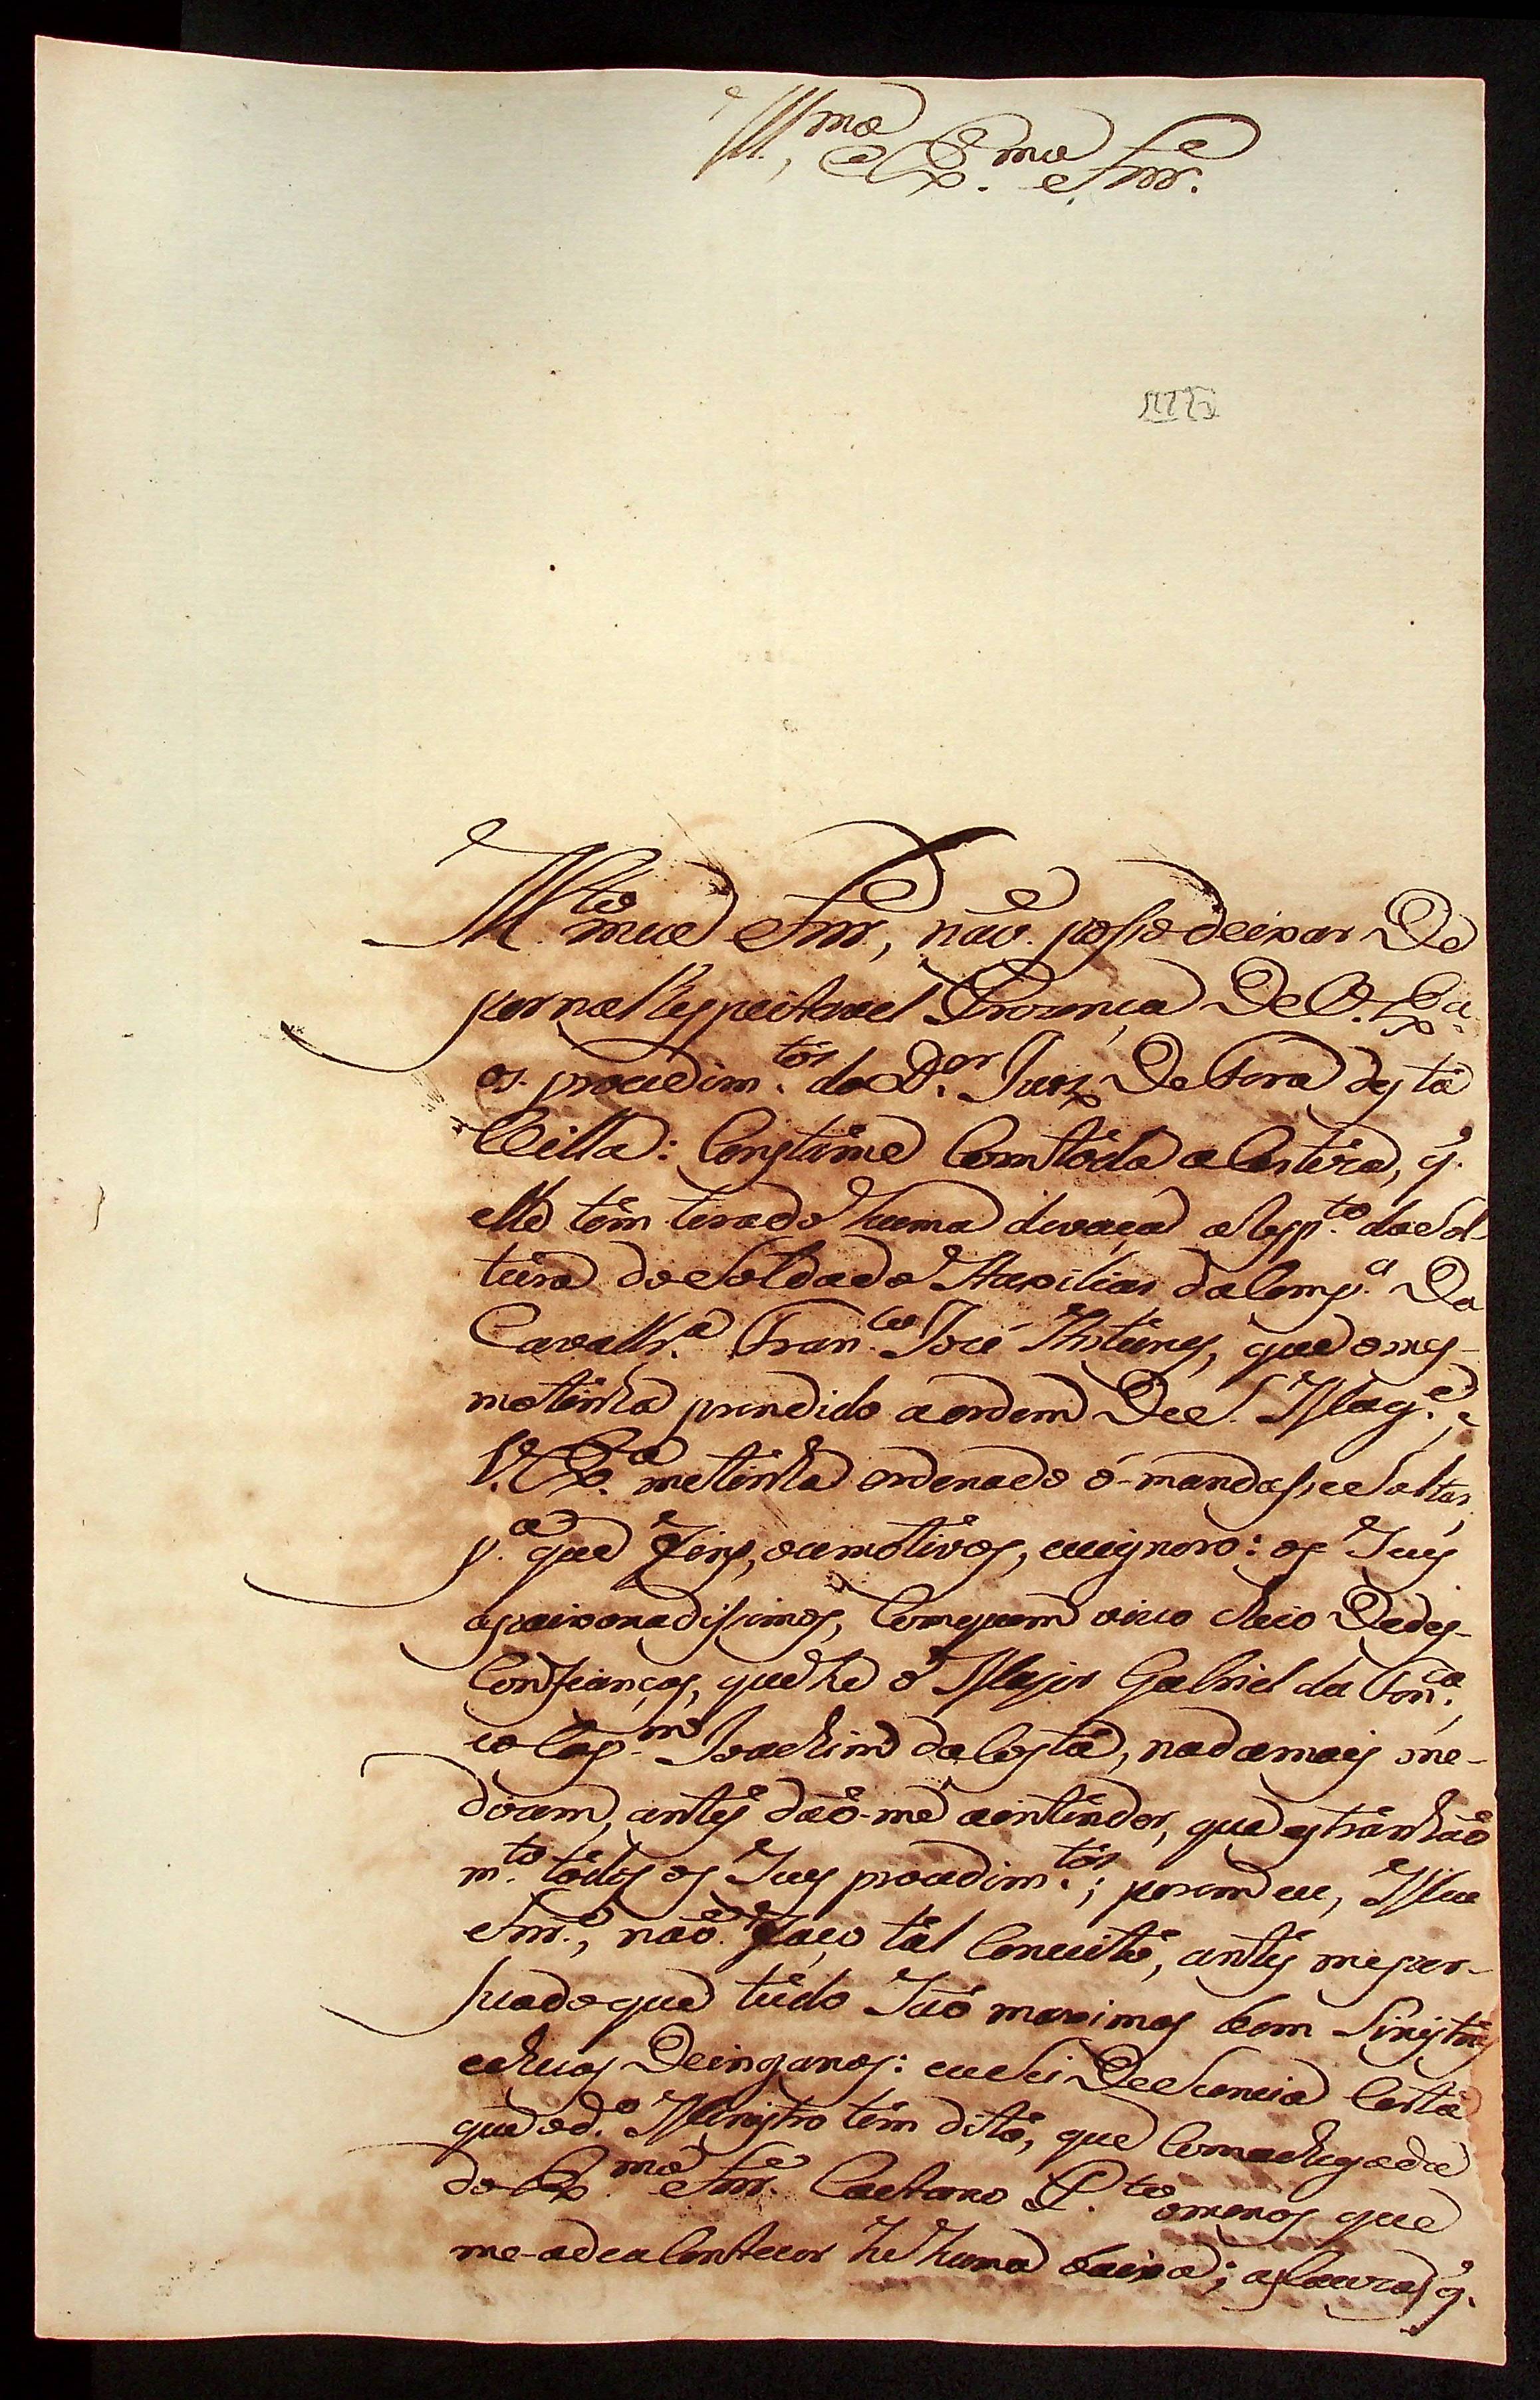 Ill.mo e Ex.mo Snr.
M.to meu Snr., não posso deixar De
por na Respeitavel Prozença De V. Ex.a
os procedim.tos do D.or Juiz De Fora desta
Villa: Constame Com toda a Certeza, q.
elle tem tirado huma devaça a resp.to da Sol-
tura do Soldado Auxiliar da Comp.a Da
Cavallr.a Fran.co José Antunes, que o mes-
mo tinha prendido a ordem De S. Mag.e, e
V. Ex.a me tinha ordenado ó-mandasse Soltar,
p.a que fins, ou motivos, eu ignoro: os Seus
apaixonadissimos, Com quem vivo cheio De des-
Confianças, que he o Major Gabriel da Fon.ca,
e o Cap.m Joachim da Costa, nada mais me-
dizem, antes dão-me a intender, que estranhão
m.to todos os Seus procedim.tos; porem eu, Meu
Snr., não faço tal Conceito, antes me per-
suado que tudo São maximas bem Sinistras
e cheias De inganos: eu Sei De Sciencia Certa
que o d.o Ministro tem dito, que Com a chegada
do Ex.mo Snr. Caetano P.to o menos que
me-ade a Contecer he huma baixa; as Lavras q.